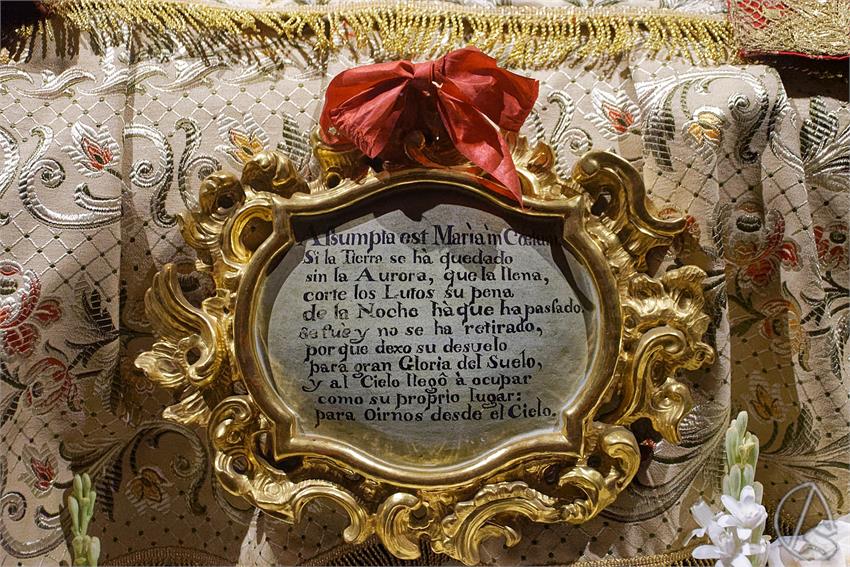 Assumpta est Marìa in Cœlum
Si la Tierra se hà quedado
sin la Aurora, que la llena,
corte los Lutos su pena
de la Noche hà que ha passado.
se fuè y no se ha retirado,
por que dexo su desuelo
para gran Gloria del Suelo,
y al Cielo llegò à ocupar
como su proprio lugar:
para Oirnos desde el Cielo.